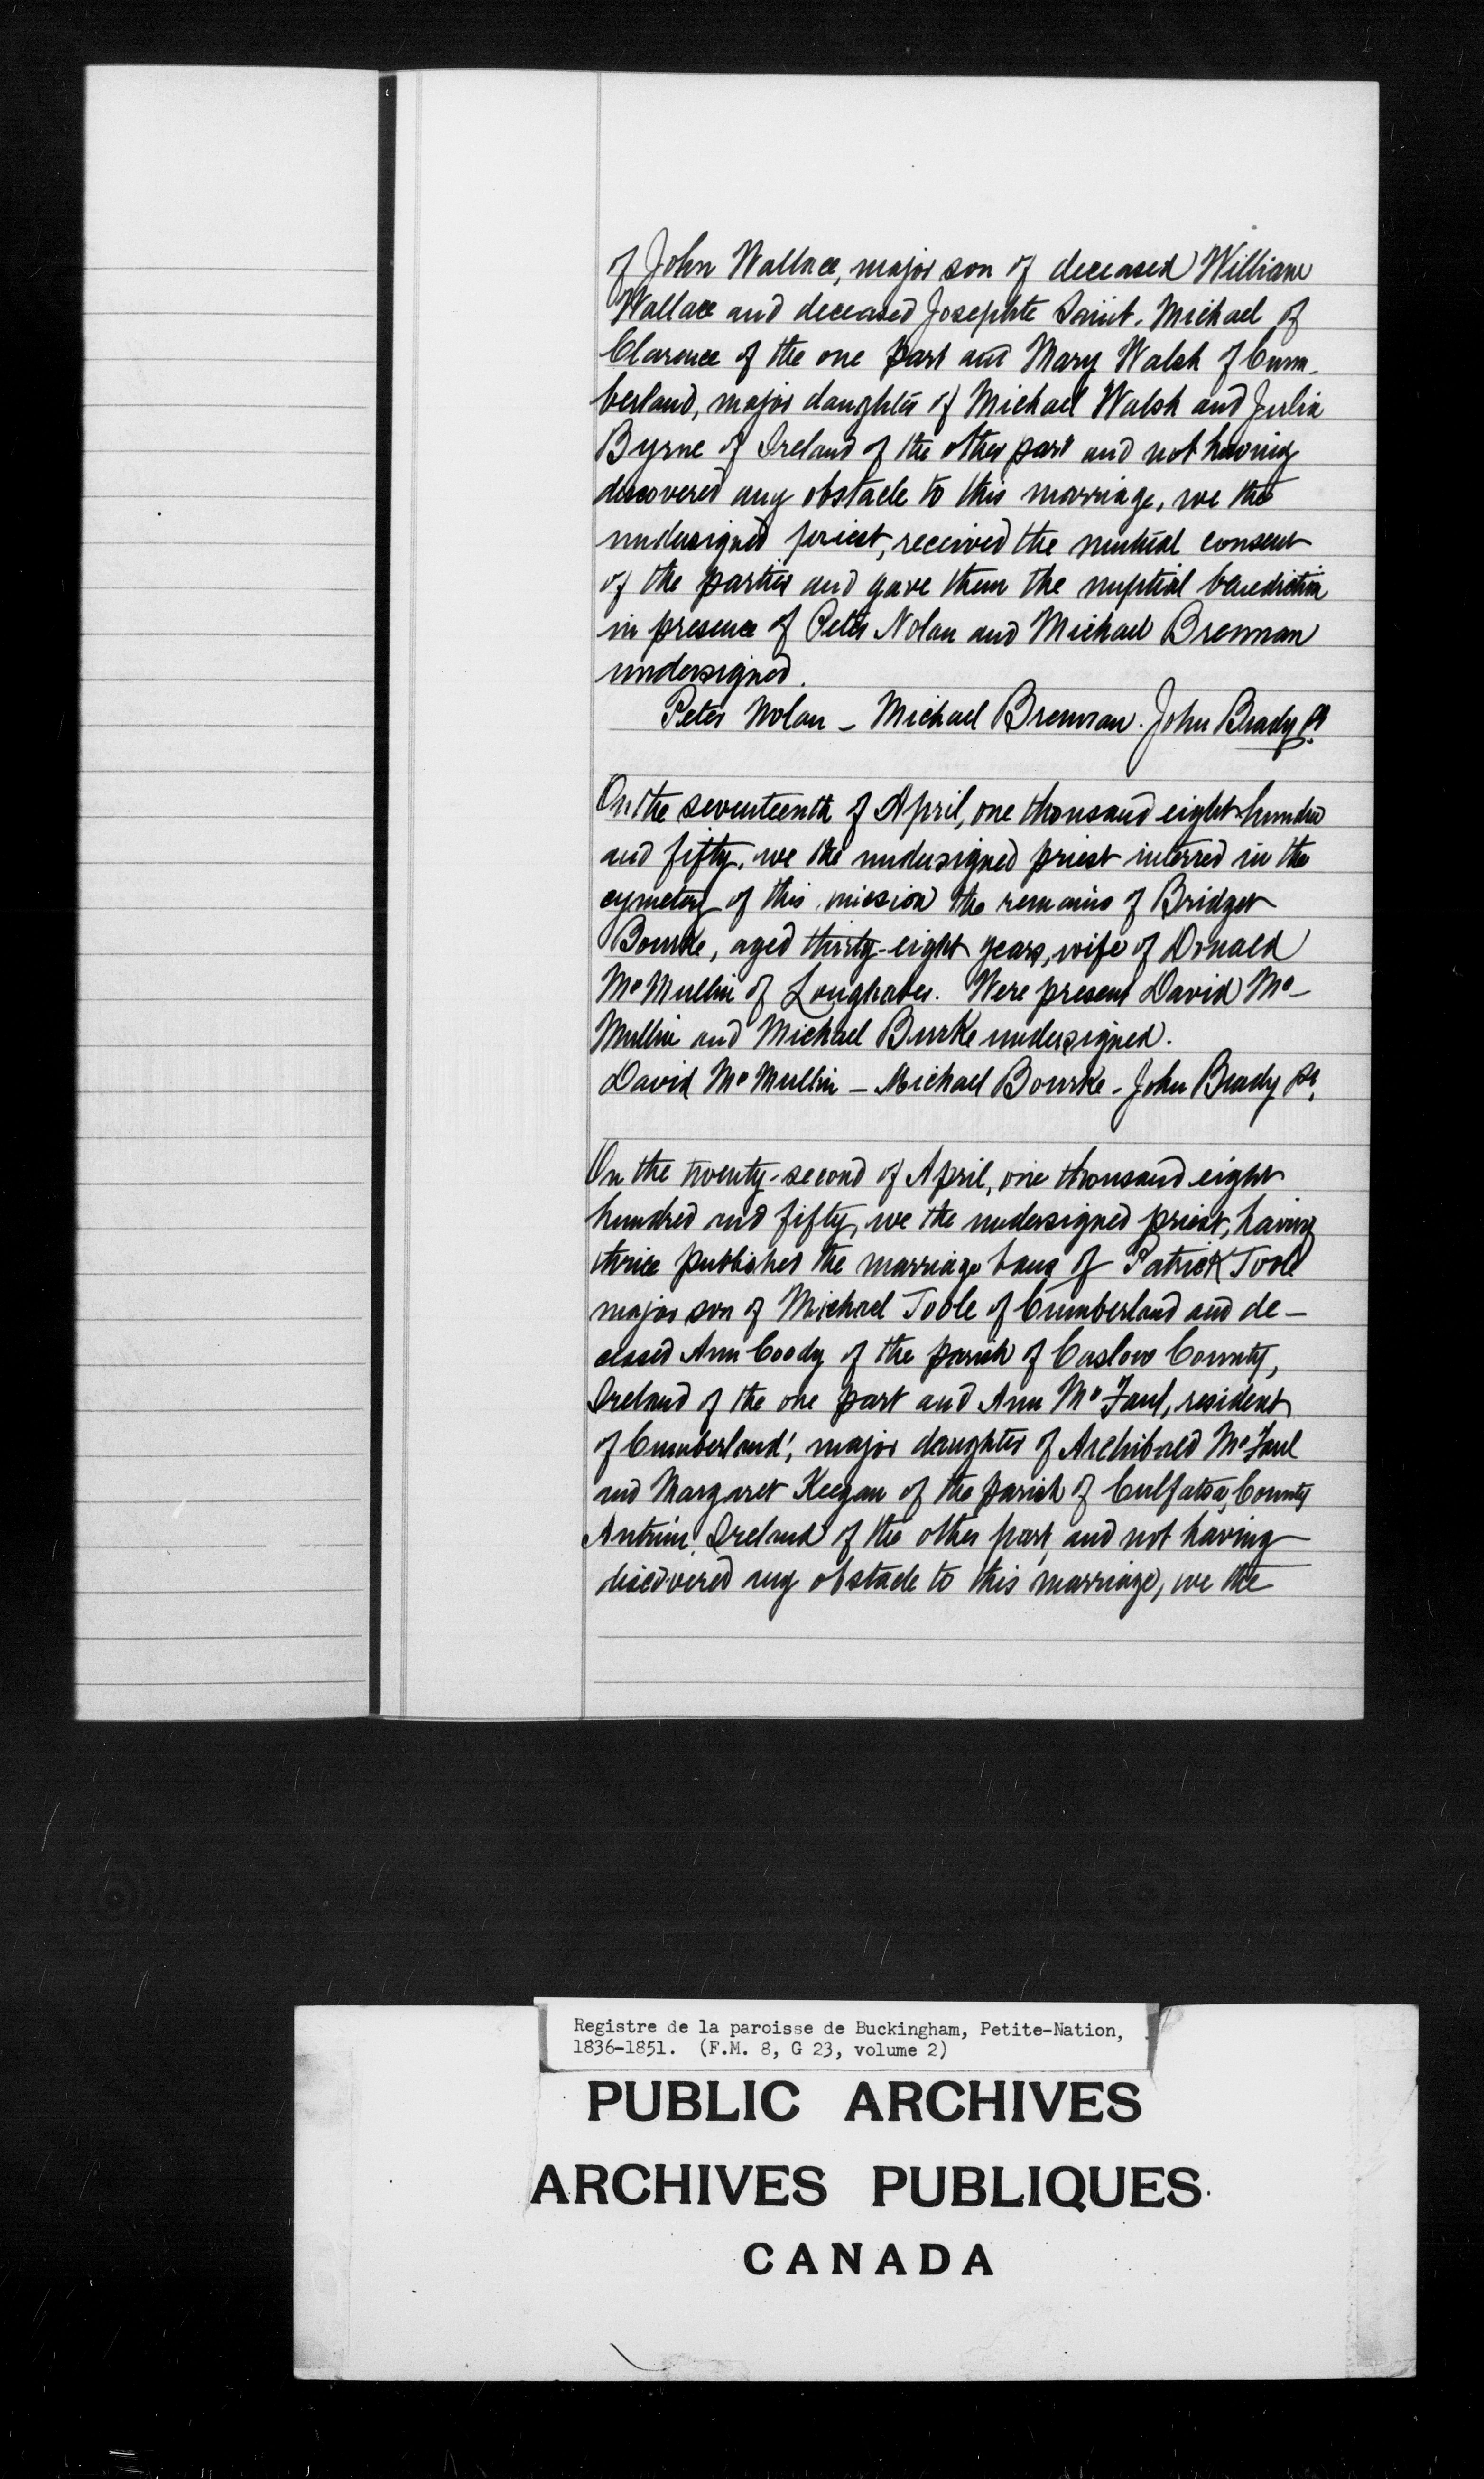 of John Wallace, major son of deceased William
Wallace and deceased Josephte Saint. Michael of
Clarence of the one part and Mary Walsh of Cum-
berland, major daughter of Michael Walsh and Julia
Byrne of Ireland of the other part and not having
discovered any obstacle to this marriage, we the
undersigned priest, received the mutual consent
of the parties and gave them the nuptial benediction
in presence of Peter Nolan and Michael Brennan
undersigned.
Peter Nolan - Michael Brennan. John Brady Pt
On the seventeenth of April, one thousand eight hundred
and fifty, we the undersigned priest interred in the
cymetery of this mission the remains of Bridget
Bourke, aged thirty-eight years, wife of Donald
McMullin of Loughaber. Were present David Mc-
Mullin and Michael Burke undersigned.
David McMullin - Michael Bourke - John Brady pt.
On the twenty-second of April, one thousand eight
hundred and fifty, we the undersigned priest, having
thrice published the marriage bans of Patrick Toole
major son of Michael Toole of Cumberland and de-
ceased Ann Coody of the parish of Caslow County,
Ireland of the one part and Ann McFaul, resident
of Cumberland, major daughter of Archibald McFaul
and Margaret Keegan of the parish of Culfatra, County
Antrim, Ireland of the other part, and not having
discovered any obstacle to this marriage, we the
Registre de la paroisse de Buckingham, Petite-Nation,
1836-1851. (F.M. 8, G 23, volume 2)
PUBLIC ARCHIVES
ARCHIVES PUBLIQUES
CANADA